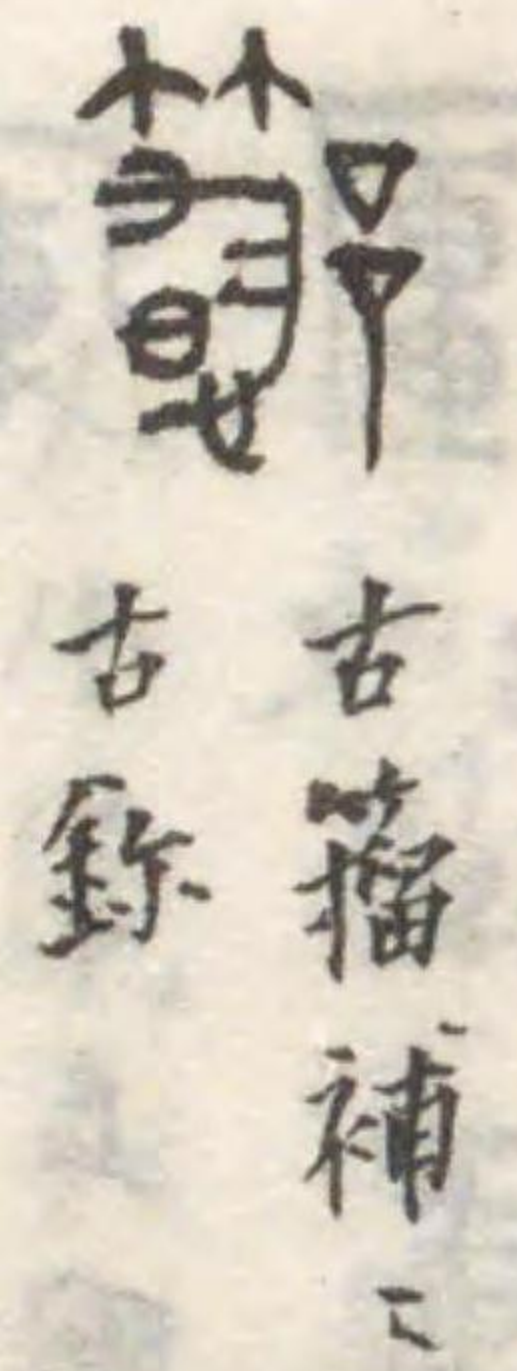 古籀補二
古鉨